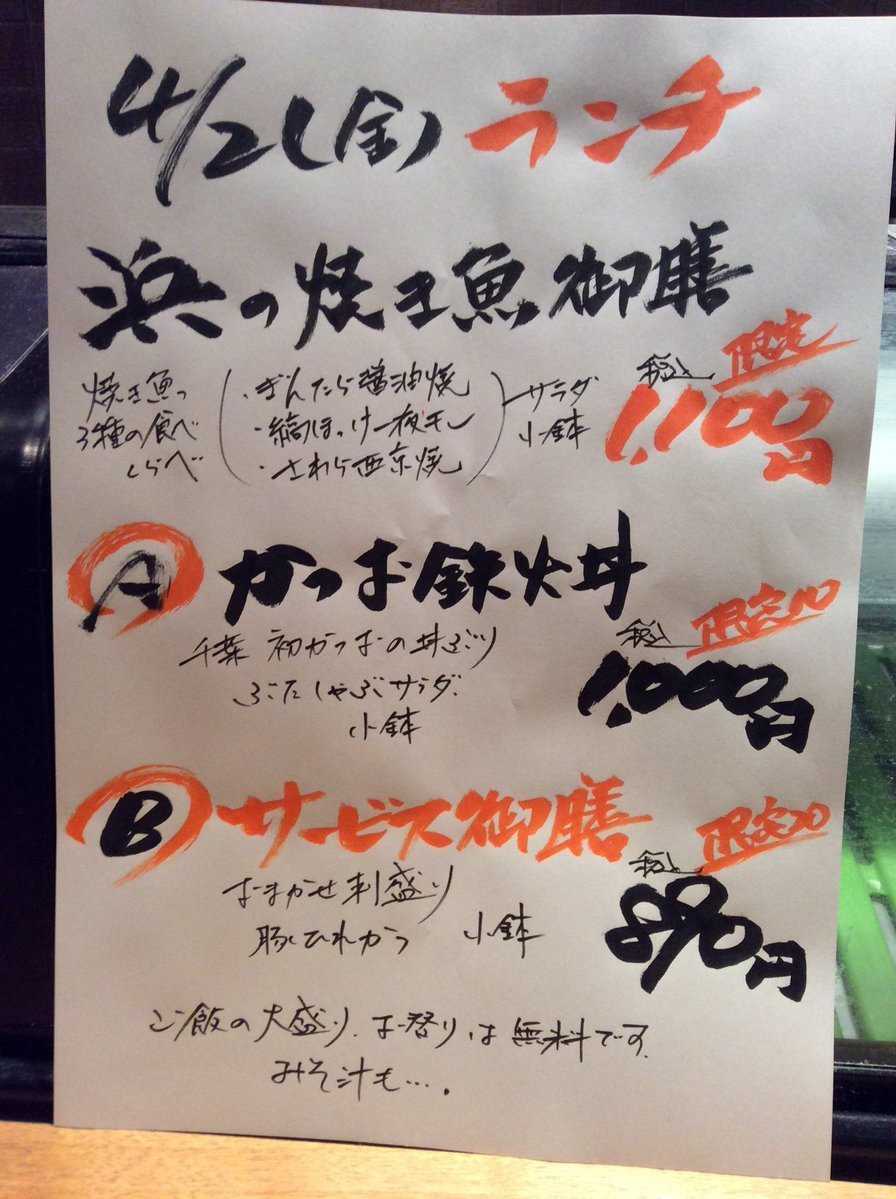 4/21(金) ランチ
浜の焼き魚御膳
限定
税込
1,100円
焼き魚
3種の食べ
くらべ
・ぎんたら醤油焼
・縞ほっけ一夜干し
・さわら西京焼
サラダ
小鉢
A かつお鉄火丼
限定10
税込
1,000円
千葉 初かつおの丼ぶり
ぶたしゃぶサラダ
小鉢
B サービス御膳
限定20
税込
890円
おまかせ刺盛り
豚ひれかつ 小鉢
ご飯の大盛り、お替りは無料です。
みそ汁も…。